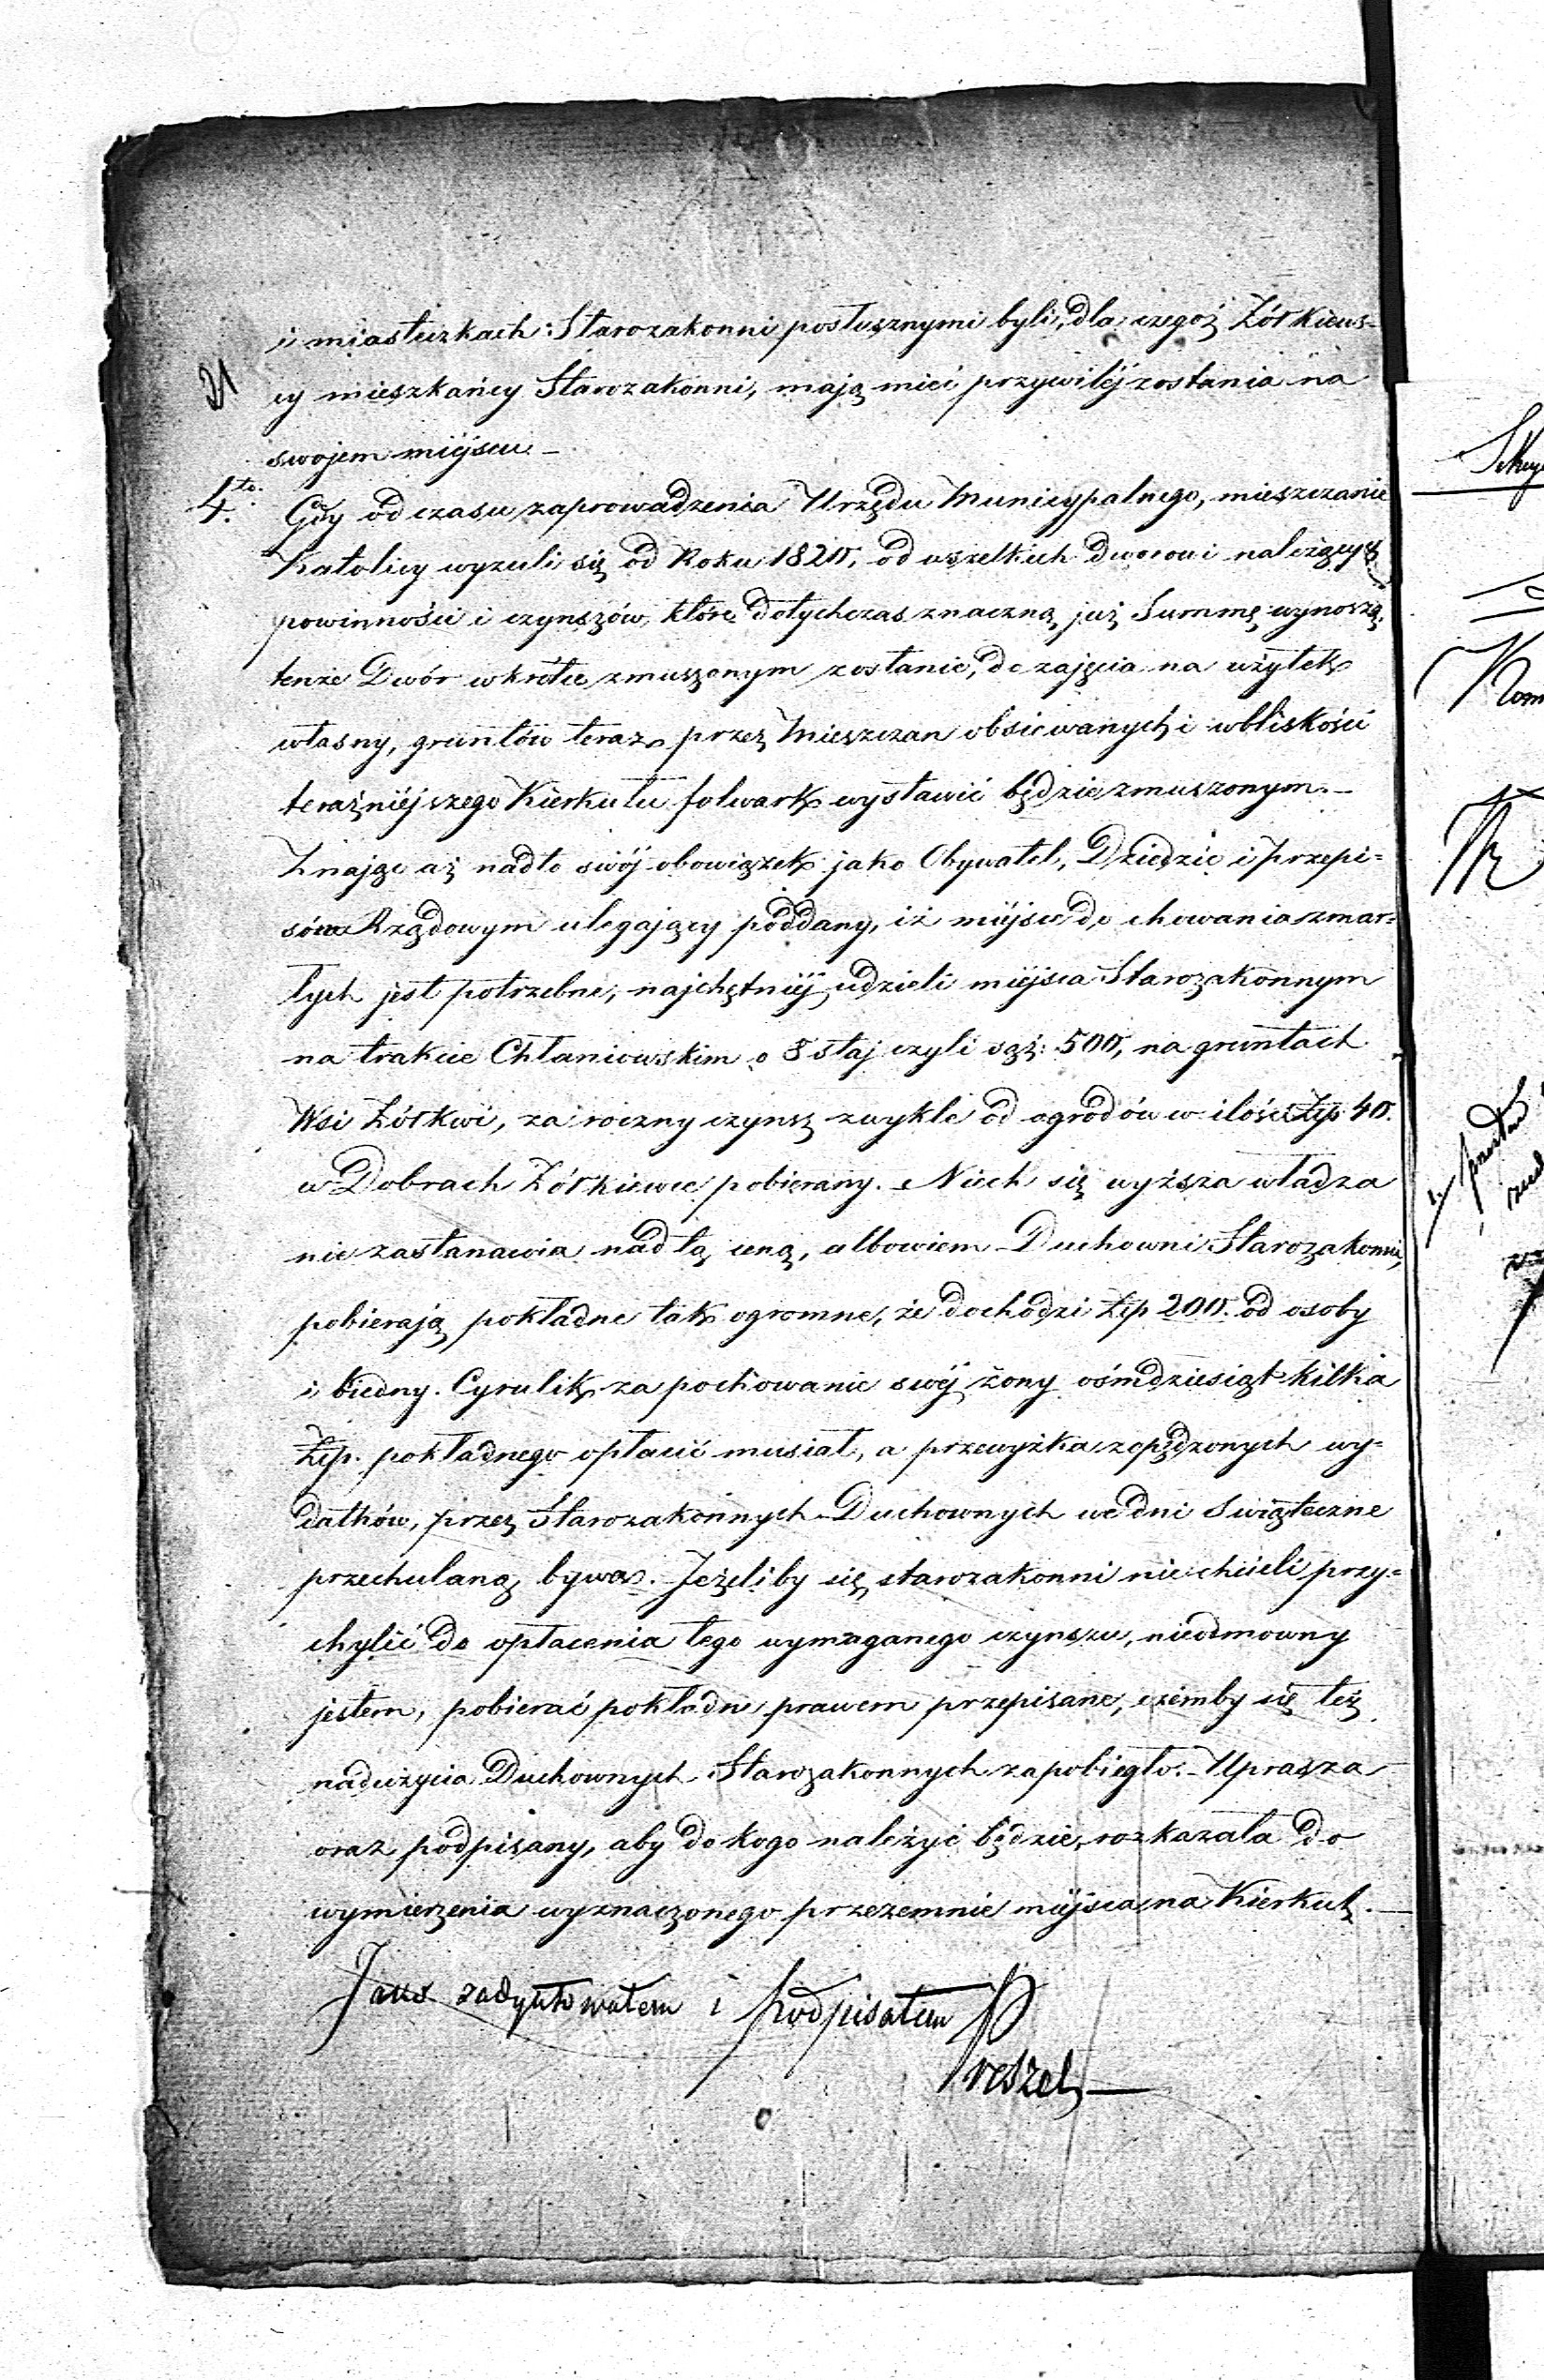 i miasteczkach: Starozakonni posłusznymi byli, dla czegoż Żółkiews-
cy mieszkańcy Starozakonni, mają mieć przywilej zostania na
swojem miejscu. –
4.to Gdy od czasu zaprowadzenia Urzędu Municypalnego, mieszczanie
Katolicy wyzuli się od Roku 1820, od wszelkich dworowi należących
powinności i czynszów, które dotychczas znaczną już Summę wynoszą,
tenże Dwór wkrótce zmuszonym zostanie, do zajęcia na użytek
własny, gruntów teraz przez Mieszczan obsiewanych i w bliskości
teraźniejszego Kierkutu folwark wystawić będzie zmuszonym. –
Znając aż nadto swój obowiązek jako Obywatel, Dziedzic i przepi=
sów Rządowym ulegający poddany, iż miejsce do chowania zmar=
łych jest potrzebne, najchętniej udzieli miejsca Starozakonnym
na trakcie Chłaniowskim o 8 staj czyli sąż: 500, na gruntach
Wsi Żółkwi, za roczny czynsz zwykle od ogrodów w ilości Złp 40.
w Dobrach Żółkiewce pobierany. – Niech się wyższa władza
nie zastanawia nad tą ceną, albowiem Duchowni Starozakonni,
pobierają pokładne tak ogromne, że dochodzi Złp 200. od osoby
i biedny. Cyrulik za pochowanie swéj żony ośmdziesiąt kilka
Złp. pokładnego opłacić musiał, a przewyżka zopędzonych wy=
datków, przez Starozakonnych Duchownych we dni Swiąteczne
przechulaną bywa. – Jeżeliby się starozakonni nie chcieli przy=
chylić do opłacenia tego wymaganego czynszu, nieodmowny
jestem, pobierać pokładne prawem przepisane, czémby się też
nadużycia Duchownych Starozakonnych zapobiegło. – Uprasza
oraz podpisany, aby do kogo należyć będzie, rozkazała do
wymierzenia wyznaczonego przezemnie miejsca na Kierkut. –
Jako zadyktowałem i podpisałem
Preszel